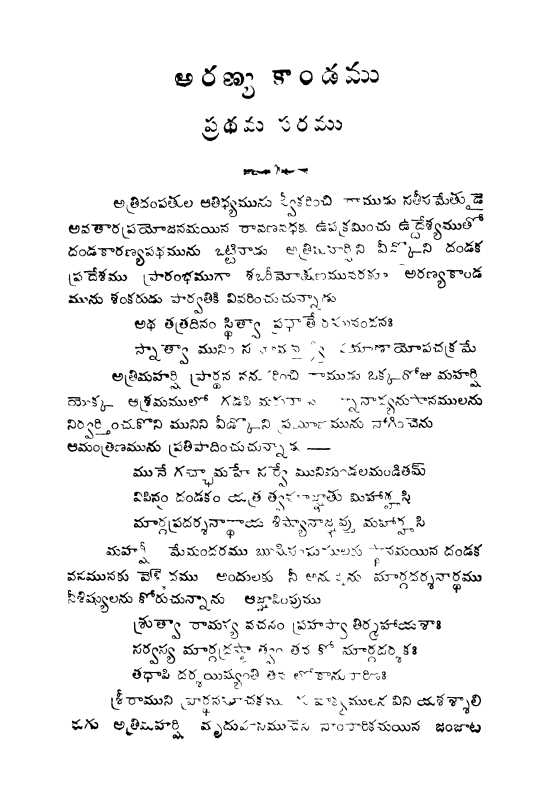 అరణ్య కాండము
ప్రథమ సర్గము
అత్రిదంపతుల ఆతిథ్యమును స్వీకరించి రాముడు సతీసమేతుడై
అవతారప్రయోజనమయిన రావణవధకు ఉపక్రమించు ఉద్దేశ్యముతో
దండకారణ్యపథమును ఒట్టినాడు అత్రిమహర్షిని వీడ్కొని దండక
ప్రదేశము ప్రారంభముగా శబరీమోక్షణమువరకు అరణ్యకాండ
మును శంకరుడు పార్వతికి వివరించుచున్నాడు
అథ తత్రదినం స్థిత్వా ప్రభాతే రఘునందనః
స్నాత్వా మునిం ప్రయాణాయోపచక్రమే
అత్రిమహర్షి ప్రార్థన ననుసరించి రాముడు ఒక్కరోజు మహర్షి
యొక్క ఆశ్రమములో గడపి మరునాడు స్నానాద్యనుష్ఠానములను
నిర్వర్తించుకొని మునిని వీడ్కొని ప్రయాణమును సాగించెను
ఆమంత్రణమును ప్రతిపాదించుచున్నాడు —
మునే గచ్ఛామహే సర్వే మునిమండలమండితమ్
విపినం దండకం యత్ర త్వమాజ్ఞాతు మిహార్హసి
మార్గప్రదర్శనార్థాయ శిష్యానాజ్ఞప్తు మర్హసి
మహర్షీ మేమందరము దండక
వనమునకు వెళ్లెదము అందులకు నీ మార్గదర్శనార్థము
నీశిష్యులను కోరుచున్నాను ఆజ్ఞాపింపుము
శ్రుత్వా రామస్య వచనం ప్రహస్యాత్రిర్మహాయశాః
సర్వస్య మార్గద్రష్టా త్వం తవ కో మార్గదర్శకః
తథాపి దర్శయిష్యంతి తవ లోకానుసారిణః
శ్రీరాముని విని యశశ్శాలి
యగు అత్రిమహర్షి మృదుహాసముచేసి సాంసారికమయిన జంజాట